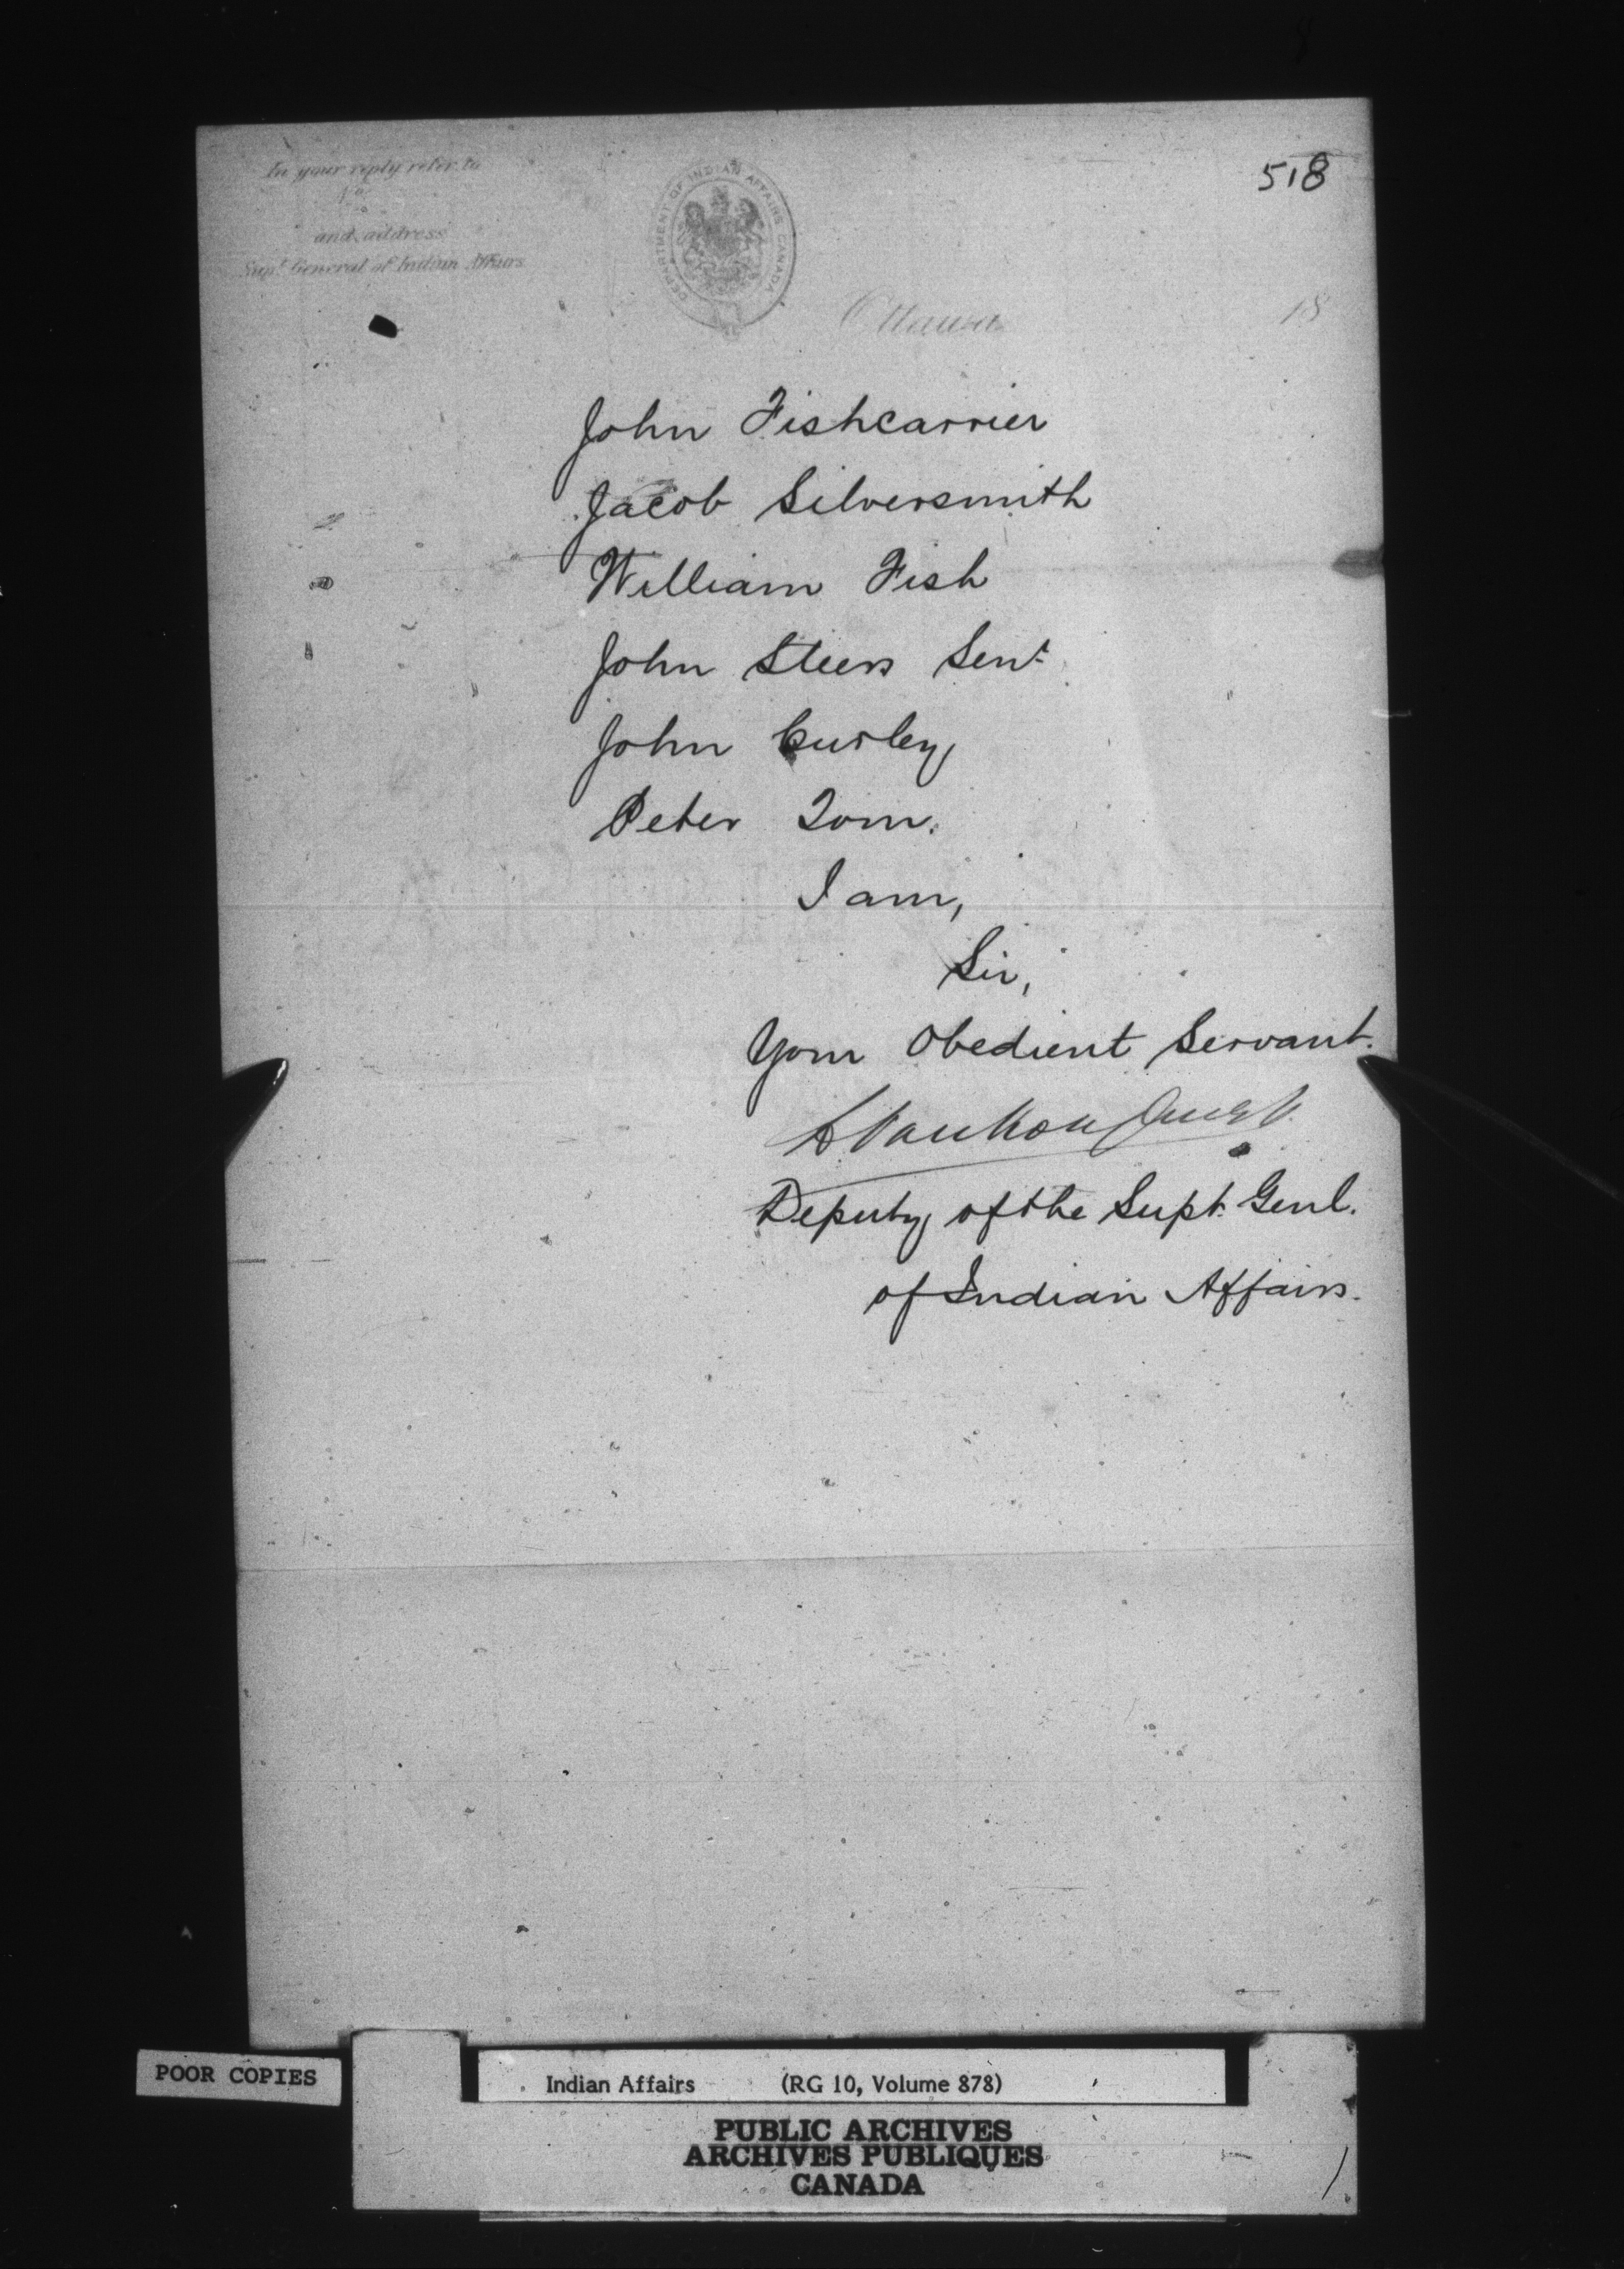 518
In your reply refer to
No.
and address
Supt. General of Indian Affairs
DEPARTMENT OF INDIAN AFFAIRS CANADA
Ottawa 18
John Fishcarrier
Jacob Silversmith
William Fish
John Steers Senr
John Curley
Peter Tom.
I am,
Sir,
Your Obedient Servant.
L VanKoughnet
Deputy of the Supt. Genl.
of Indian Affairs.
POOR COPIES
Indian Affairs (RG 10, Volume 878)
PUBLIC ARCHIVES
ARCHIVES PUBLIQUES
CANADA